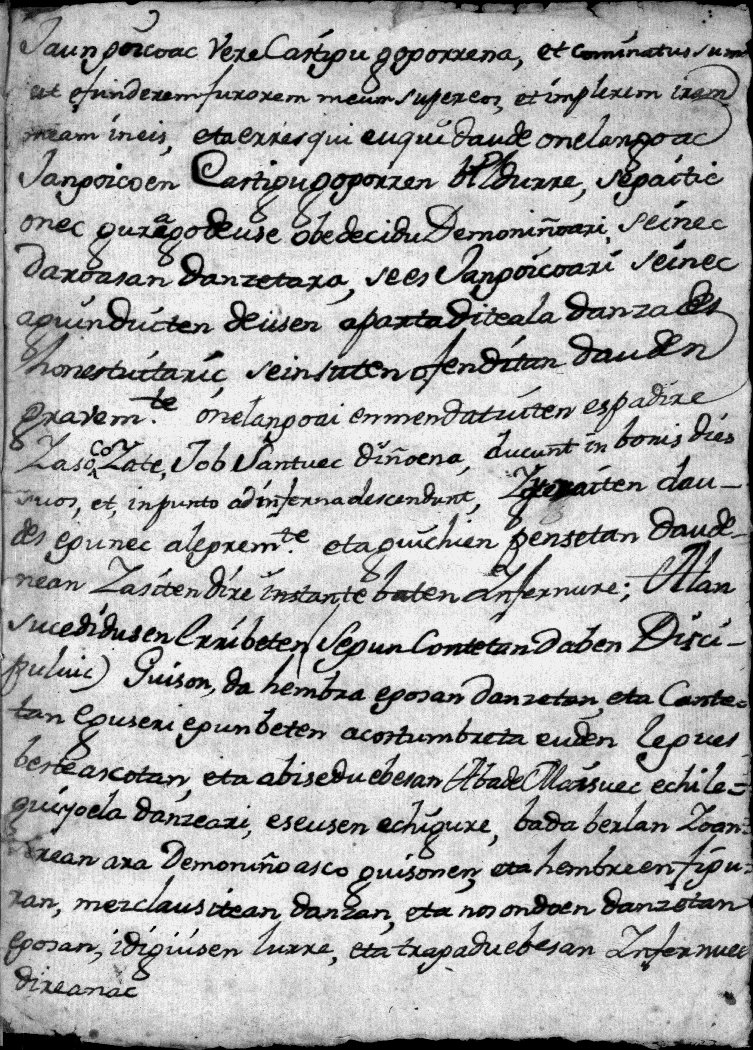 Jaungoicoac vere Castigu gogorrena, et cominatus sum
ut efunderem furorem meum super eos, et implerem iram
meam in eis, eta erresqui euqui daude onelangoac
Jangoicoen Castigu gogorren bildurre, segaitic
onec gura godeuse obedecidu Demoniñoari, seinec
daroasan danzetara, se es Jangoicoari seinec
aguinduiten deusen apartaditeala danza des
honestuitaric, seinsuten ofenditan dauden
gravem.te onelangoai enmendatuiten espadire
Zaso, Zate, Job Santuec diñoena, ducunt in bonis dies
suos, et, in punto ad inferna descendunt, Igaroiten dau-
des egunec alegrem.te eta guichien pensetan daude-
nean Zasiten dire instante baten Infernure; Alan
sucedidu sen Erri beten (segun Contetan daben Disci-
puluic) Guison, da hembra egosan danzetan, eta Cante-
tan Eguseri egun beten acostumbreta euden legues
beste ascotan, eta abisedu ebesan Abade Marsuec echile=
quiyoela danzeari, eseusen echigure, bada berlan Zoan-
erean ara Demoniño asco guisonen, eta hembreen figu-
ran, mezclausitean danzan, eta nos ondoen danzetan
egosan, idigiusen lurre, eta trapadu ebesan Infernuec
direanac